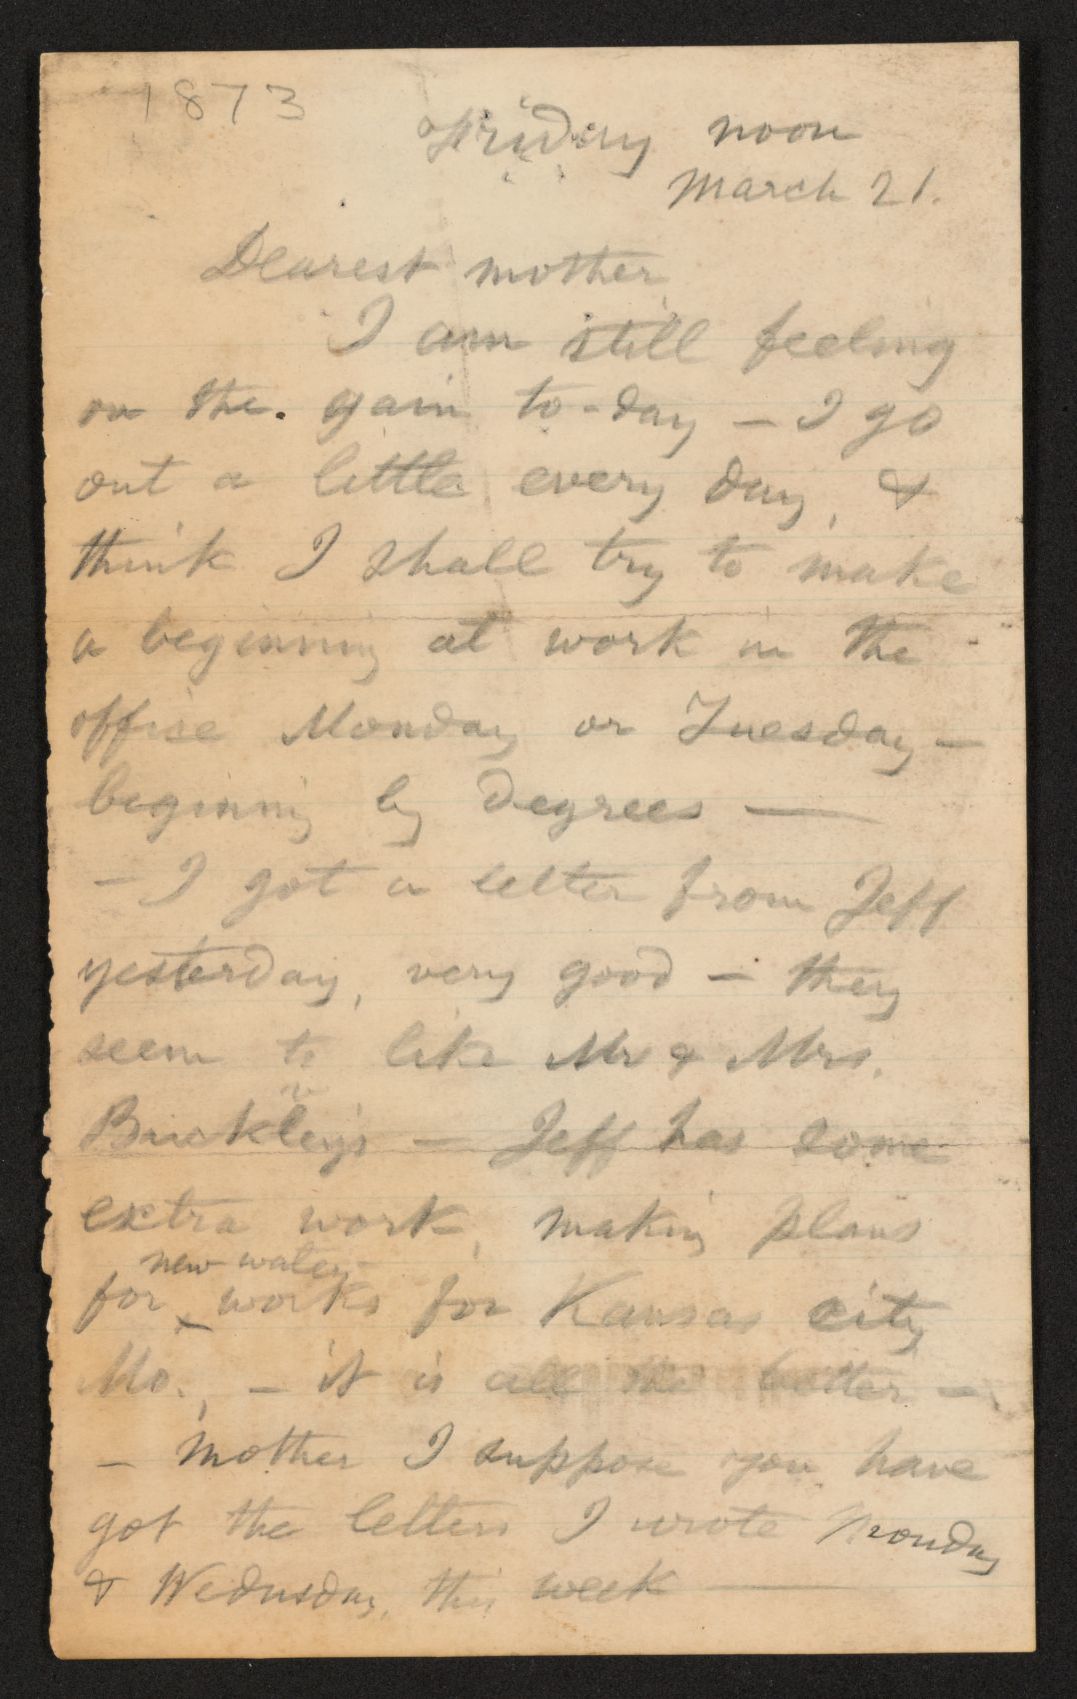 1873
Friday noon
March 21.
Dearest mother,
I am still feeling
on the gain to-day – I go
out a little every day, &
think I shall try to make
a beginning at work in the
office Monday or Tuesday –
beginning by degrees —
– I got a letter from Jeff
yesterday, very good – they
seem to like Mr & Mrs.
Buckley's – Jeff has some
extra work, making plans
new water
for ‸ works for Kansas city
Mo., – it is all the better –
– Mother I suppose you have
got the letters I wrote Monday
& Wednesday, this week —